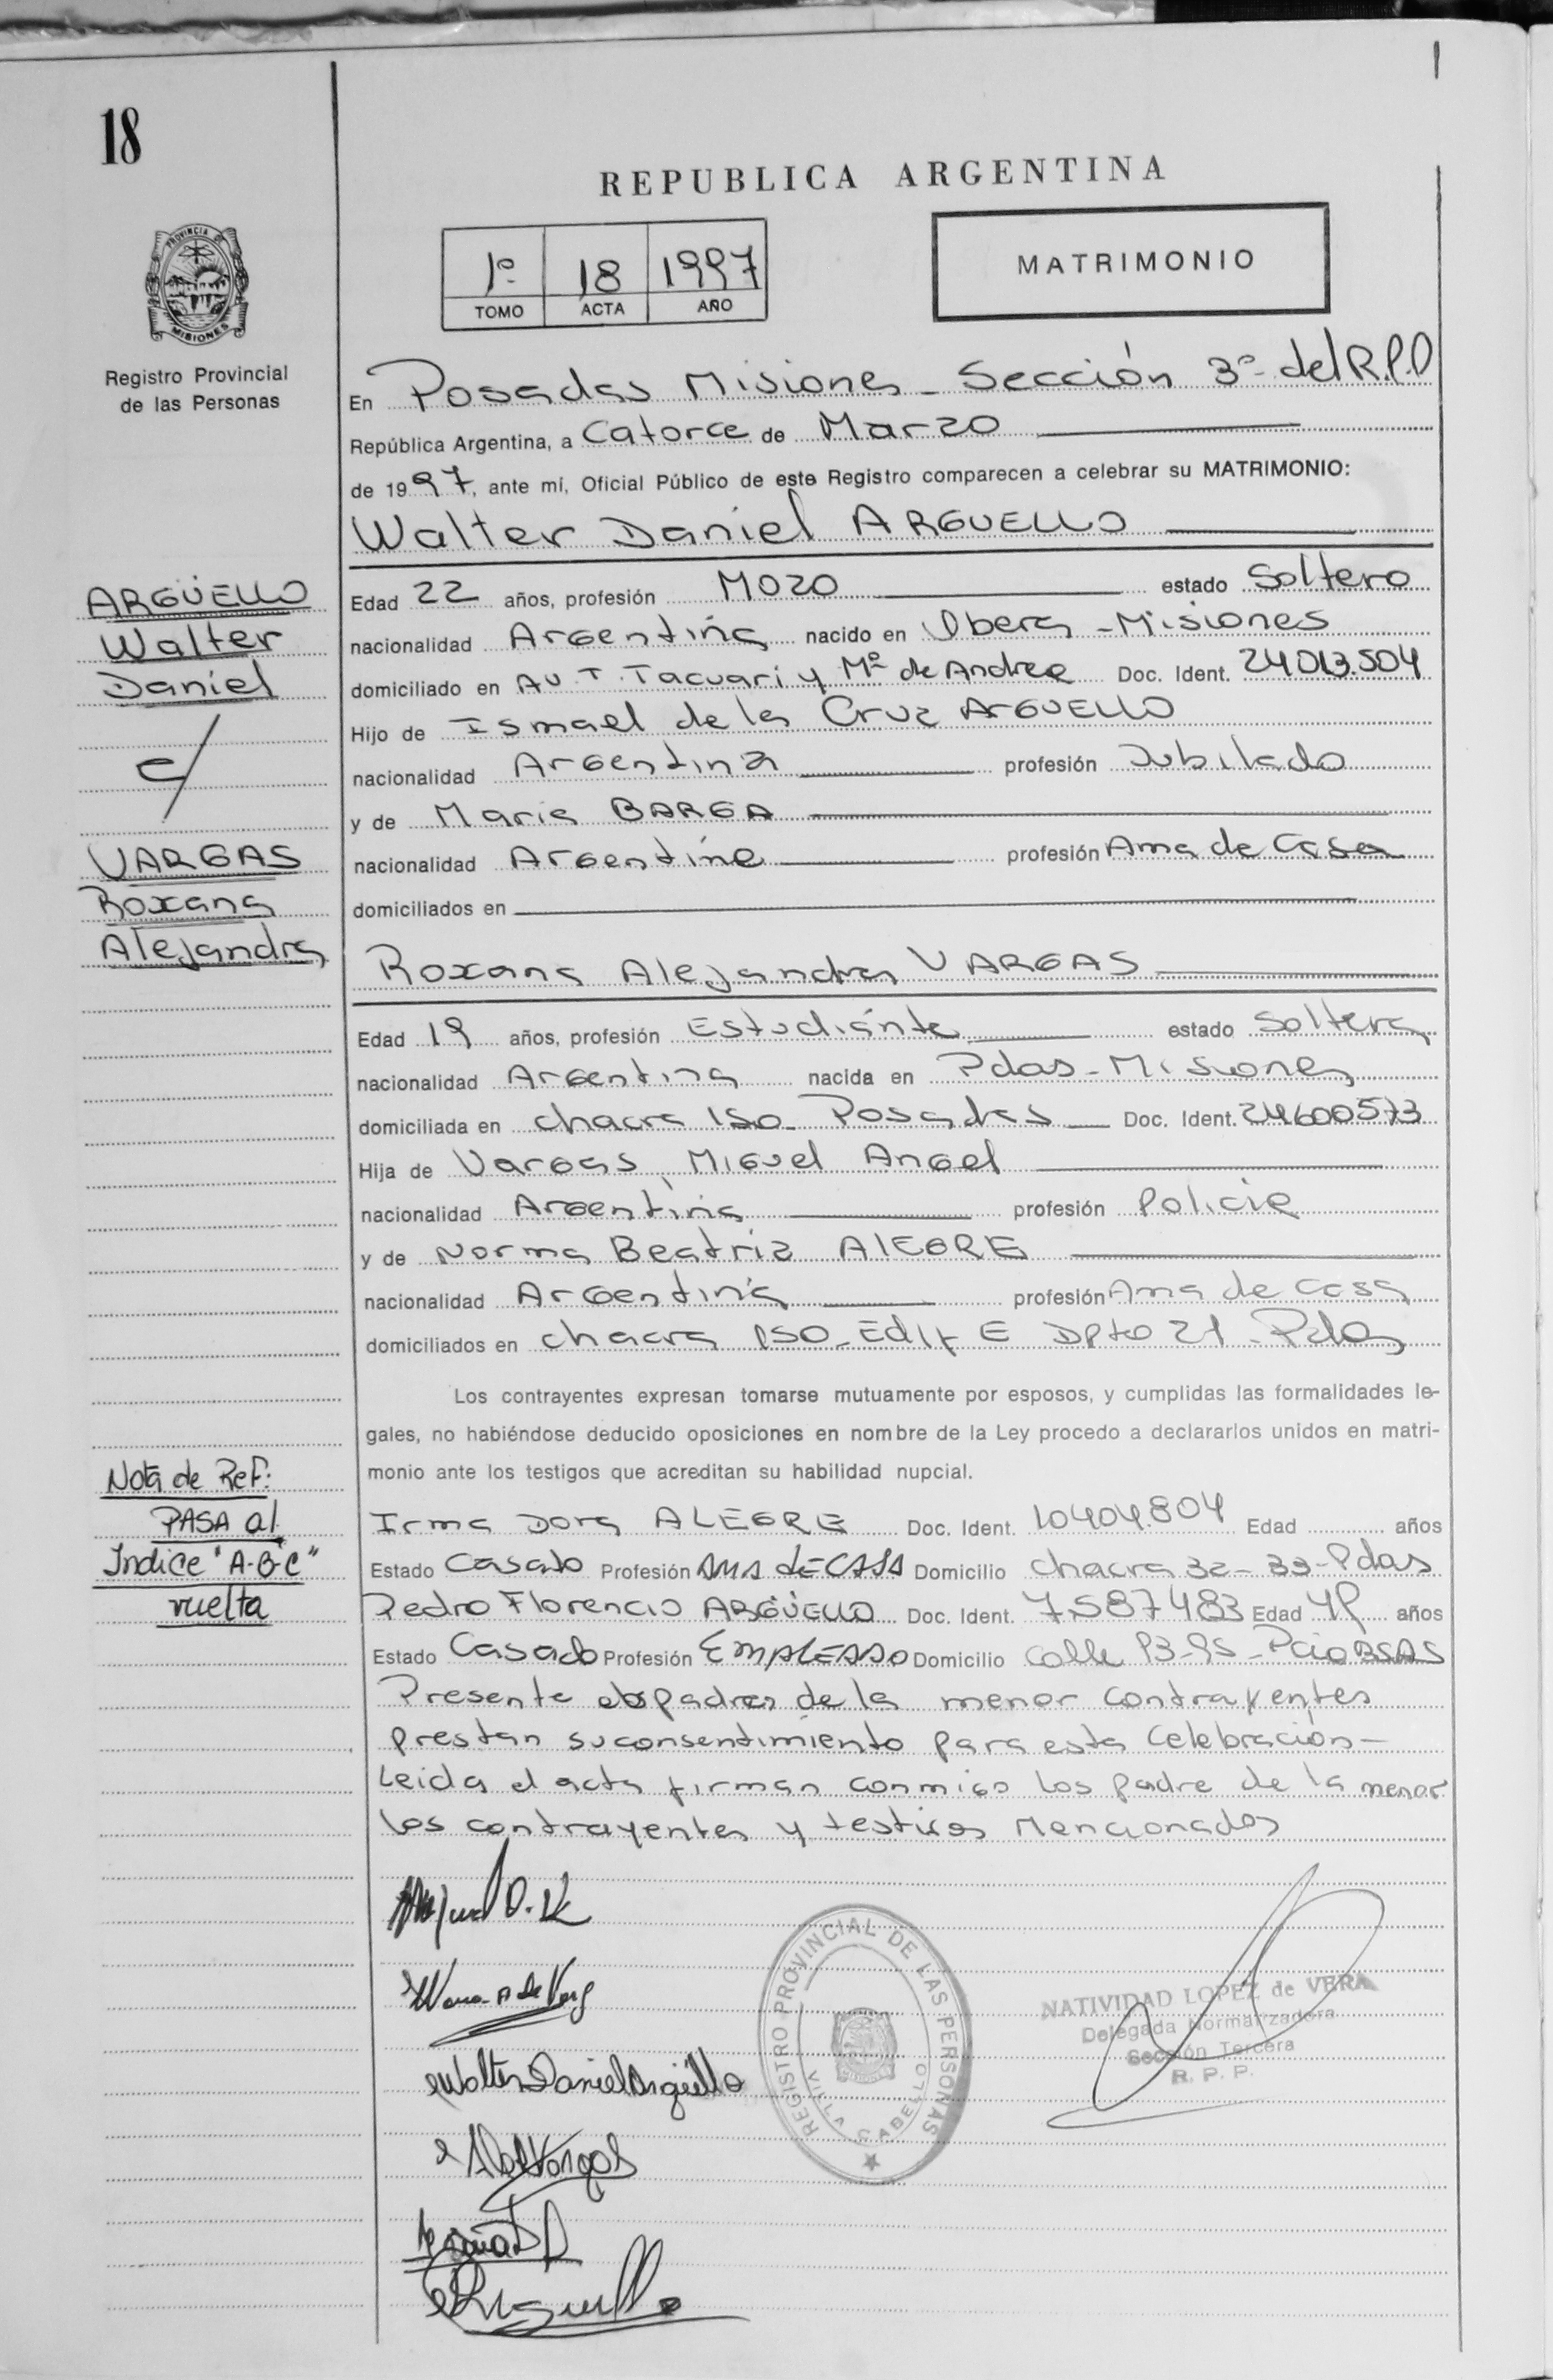 18
REPUBLICA ARGENTINA
1º 18 1997
TOMO ACTA AÑO
MATRIMONIO
PROVINCIA DE MISIONES
Registro Provincial
de las Personas
En Posadas Misiones - Sección 3º del R.P.P
República Argentina, a Catorce de Marzo
de 1997, ante mí, Oficial Público de este Registro comparecen a celebrar su MATRIMONIO:
Walter Daniel ARGUELLO
ARGÜELLO
Walter
Daniel
c/
VARGAS
Roxana
Alejandra
Edad 22 años, profesión Mozo estado Soltero
nacionalidad Argentina nacido en Obera - Misiones
domiciliado en Av. T. Tacuari y Mº de Andrea Doc. Ident. 24.013.504
Hijo de Ismael de la Cruz ARGUELLO
nacionalidad Argentina profesión Jubilado
y de Maria BARGA
nacionalidad Argentina profesión Ama de Casa
domiciliados en
Roxana Alejandra VARGAS
Edad 19 años, profesión Estudiante estado Soltera
nacionalidad Argentina nacida en Pdas - Misiones
domiciliada en chacra 150 Posadas Doc. Ident. 24600573
Hija de Vargas, Miguel Angel
nacionalidad Argentina profesión Policia
y de Norma Beatriz AlEGRE
nacionalidad Argentina profesión Ama de casa
domiciliados en chacra 150 - Edif E Dpto 21 - Pdas
Los contrayentes expresan tomarse mutuamente por esposos, y cumplidas las formalidades le-
gales, no habiéndose deducido oposiciones en nombre de la Ley procedo a declararlos unidos en matri-
monio ante los testigos que acreditan su habilidad nupcial.
Nota de Ref:
PASA al
Indice "A-B-C"
vuelta
Irma Dora ALEGRE Doc. Ident. 10.404.804 Edad años
Estado Casado Profesión AMA de CASA Domicilio Chacra 32-33-Pdas
Pedro Florencio ARGÜELLO Doc. Ident. 7.587.483 Edad 49 años
Estado Casado Profesión EMPLEADO Domicilio Calle Pcia BSAS
Presente los padres de la menor contrayentes
prestan su consentimiento para esta celebración -
Leida el acta firman conmigo los padre de la menor
los contrayentes y testigos Mencionados
Walter Daniel Argüello
REGISTRO PROVINCIAL DE LAS PERSONAS
VILLA CABELLO
NATIVIDAD LOPEZ de VERA
Delegada Normalizadora
Sección Tercera
R. P. P.